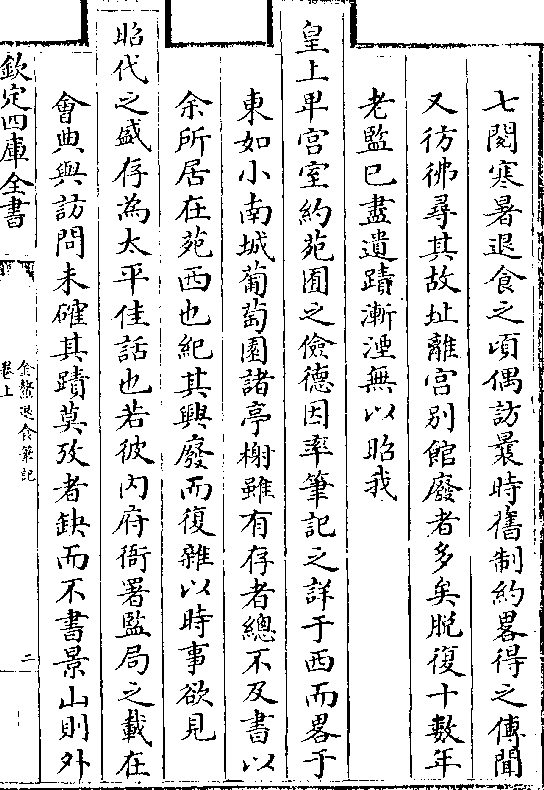 七閱寒暑退食之頃偶訪曩時舊制約畧得之傳聞
又彷彿尋其故址離宫别館廢者多矣脱復十數年
老監已盡遺蹟漸湮無以昭我
皇上卑宫室約苑囿之儉德因率筆記之詳于西而畧于
東如小南城葡萄園諸亭榭雖有存者總不及書以
余所居在苑西也紀其興廢而復雜以時事欲見
昭代之盛存為太平佳話也若彼内府衙署監局之載在
會典與訪問未確其蹟莫攷者缺而不書景山則外
欽定四庫全書
金鰲退食筆記
卷上
二